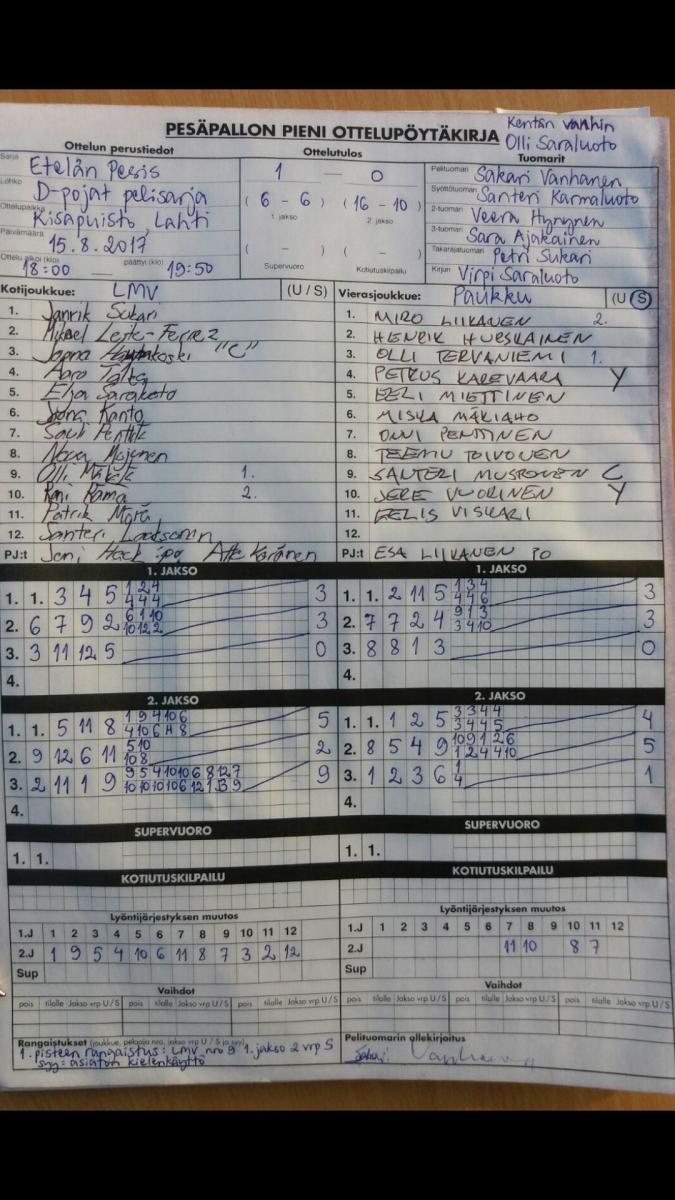 PESÄPALLON PIENI OTTELUPÖYTÄKIRJA
Kentän vanhin
Olli Saraluoto
Ottelun perustiedot
Ottelutulos
Tuomarit
Sarja Etelän Pesis
Lohko D-pojat pelisarja
Ottelupaikka Kisapuisto, Lahti
Päivämäärä 15.8.2017
Ottelu alkoi (klo) 18:00 päättyi (klo) 19:50
1 — 0
(6 - 6) (16 - 10)
1. jakso 2. jakso
( - ) ( - )
Supervuoro Kotiutuskilpailu
Pelituomari Sakari Vanhanen
Syöttötuomari Santeri Karmaluoto
2-tuomari Veera Hynynen
3-tuomari Sara Ajakainen
Takarajatuomari Petri Sukari
Kirjuri Virpi Saraluoto
Kotijoukkue: LMV (U / S)
1. Janrik Sukari
2. Mikael
3. Joona "C"
4. Aaro
5. Saraluoto
6. Joona Kanto
7. Penttilä
8. Mojonen
9. Olli 1.
10. Rämä 2.
11. Patrik
12. Santeri
PJ:t Joni Atte
Vierasjoukkue: Paukku (U / S)
1. MIRO LIIKANEN 2.
2. HENRIK HURSKAINEN
3. OLLI TERVANIEMI 1.
4. PETRUS KAREVAARA Y
5. EELI MIETTINEN
6. MISKA MÄKIAHO
7. ONNI PENTTINEN
8. TEEMU TOIVONEN
9. SANTERI MUSTONEN C
10. JERE VUORINEN Y
11. EELIS VISKARI
12.
PJ:t ESA LIIKANEN PO
1. JAKSO
1. 1. 3 4 5 1 2 4 3
4 4 4
2. 6 7 9 2 6 1 10 3
10 12 2
3. 3 11 12 5 0
4.
2. JAKSO
1. 1. 5 11 8 1 9 4 10 6 5
4 10 6 11 8
2. 9 12 6 11 5 10 2
10 8
3. 2 11 1 9 9 5 4 10 10 6 8 12 7 9
10 10 10 10 6 12 1 3 9
4.
SUPERVUORO
1. 1.
KOTIUTUSKILPAILU
1. JAKSO
1. 1. 2 11 5 1 3 4 3
4 4 6
2. 7 7 2 4 9 1 3 3
3 4 10
3. 8 8 1 3 0
4.
2. JAKSO
1. 1. 1 2 5 3 3 4 4 4
3 4 4 5
2. 8 5 4 9 10 9 1 2 6 5
1 2 4 4 10
3. 1 2 3 6 1 1
4
4.
SUPERVUORO
1. 1.
KOTIUTUSKILPAILU
Lyöntijärjestyksen muutos
1.J 1 2 3 4 5 6 7 8 9 10 11 12
2.J 1 9 5 4 10 6 11 8 7 3 2 12
Sup
Vaihdot
pois tilalle Jakso vrp U / S pois tilalle Jakso vrp U / S pois tilalle Jakso vrp U / S
Lyöntijärjestyksen muutos
1.J 1 2 3 4 5 6 7 8 9 10 11 12
2.J 11 10 8 7
Sup
Vaihdot
pois tilalle Jakso vrp U / S pois tilalle Jakso vrp U / S pois tilalle Jakso vrp U / S
Rangaistukset (joukkue, pelaaja nro, jakso vrp U / S ja syy)
1. pisteen rangaistus: LMV nro 9 1. jakso 2 vrp S
syy: asiaton kielenkäyttö
Pelituomarin allekirjoitus
Sakari Vanhanen